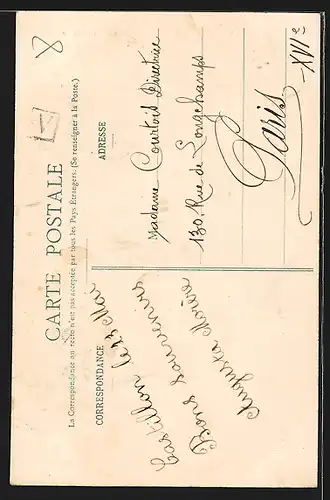 CARTE POSTALE
La Correspondance au recto n'est pas acceptée par tous les Pays Étrangers. (Se renseigner à la Poste.)
CORRESPONDANCE
ADRESSE
Castillon le 13 Mai
Bons Souvenirs
Augusta
Madame Courtois Directrice
130. Rue de Longchamps
Paris
XVIe
8